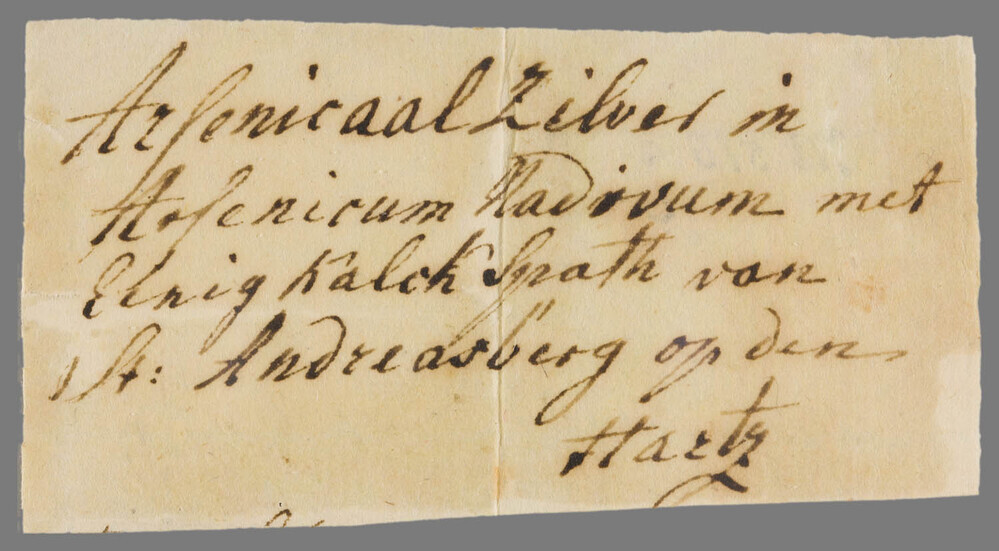 Arsenicaal Zilver in
Arsenicum Nadivum met
Eenig Kalck Spath van
St: Andreasberg op den
Hartz